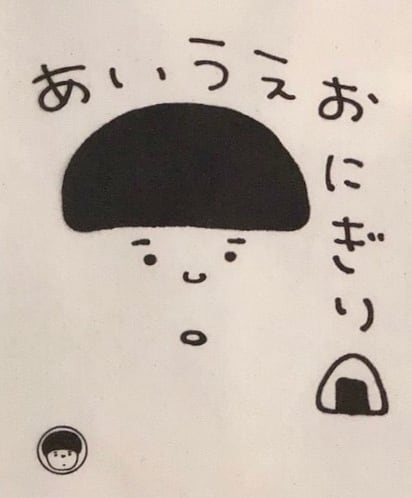 あいうえおにぎり